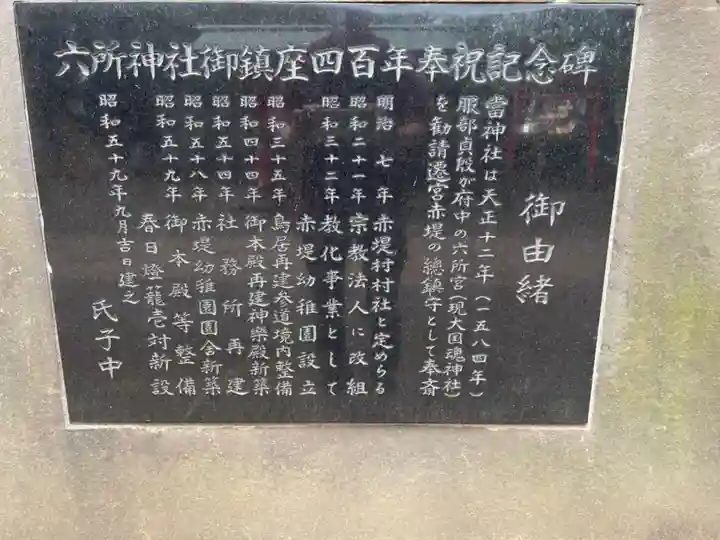 六所神社御鎮座四百年奉祝記念碑
御由緒
當神社は天正十二年(一五八四年)
服部貞殿が府中の六所宮(現大国魂神社)
を勧請遷宮赤堤の總鎮守として奉斎
明治七年赤堤村村社と定めらる
昭和二十一年宗教法人に改組
昭和三十二年教化事業として
赤堤幼稚園設立
昭和三十五年鳥居再建参道境内整備
昭和四十四年御本殿再建神樂殿新築
昭和五十四年社務所再建
昭和五十八年赤堤幼稚園園舎新築
昭和五十九年御本殿等整備
春日燈籠壱対新設
昭和五十九年九月吉日建之
氏子中